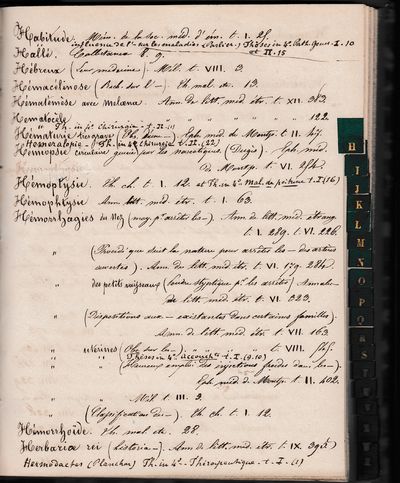 Habitude. Mém. de la soc. méd. d'ém. t. I. 28.
influence de l'— sur les maladies (Parlier) Thèses in 4° Path. génér. I. 10
et II. 15
Hallé. Collectanea V. 9.
Hébreux (Leur médecine). Mél. t. VIII. 3.
Hémacélinose (Rech. sur l'—). Th. mal. etc. 13.
Hématémèse avec mélæna. Ann. de litt. méd. étr. t. XII. 383.
Hématocèle 122.
" Th. in 4° Chirurgie t. II. (11)
Hématurie Eph. méd. de Montp. t. II. 47.
Hesneralopie. Th. in 4° Chirurgie t. II. (22)
Hémiopsie guérie par les narcotiques. (Dugès). Eph. méd.
de Montp. t. VI.
Hémoptysie. Th. ch. t. I. 12. et Th. in 4° Mal. de poitrine t. I (16)
Hémophtysie Ann. litt. méd. étr. t. I. 63.
Hémorrhagies du Nez (moy. pr arrêter les—). Ann. de litt. méd. étrang.
t. I. 289. t. VI. 226.
" (Procédé que suit la nature pour arrêter les— des artères
ouvertes). Ann. de litt. méd. étr. t. VI. 179. 284.
" des petits vaisseaux (Poudre styptique pr les arrêter) Annales
de litt. méd. étr. t. VI. 323.
" (Dispositions aux— existantes dans certaines familles).
Ann. de litt. méd. étr. t. VII. 163.
" utérines (Obs. sur les—). " " t. VIII.
" Thèses in 4° accoucht t. I. (9.10)
" (Fameux emploi des injections froides dans les—).
Eph. méd. de Montp. t. II. 402.
" " Mél. t. III. 3.
" (Classification des—). Th. ch. t. I. 12.
Hémorrhoïde. Th. mal. etc. 28.
Herbaria rei (historia—). Ann. de litt. méd. étr. t. IX.
Hermodactes (Planchon) Th. in 4° - Thérapeutique - t. I. (1)
H
I
J
K
L
M
N
O
P
Q
R
S
T
U
V